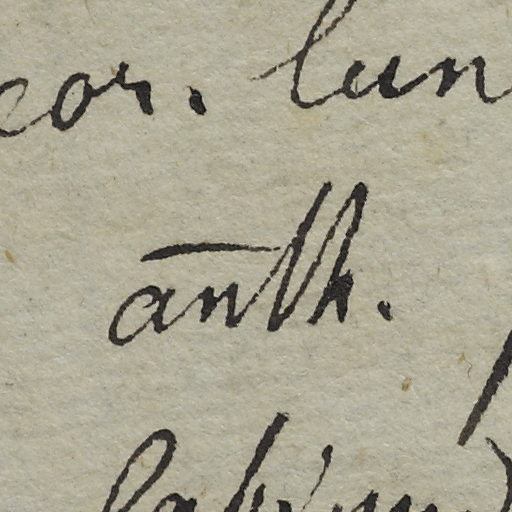 cor. lun
anth.